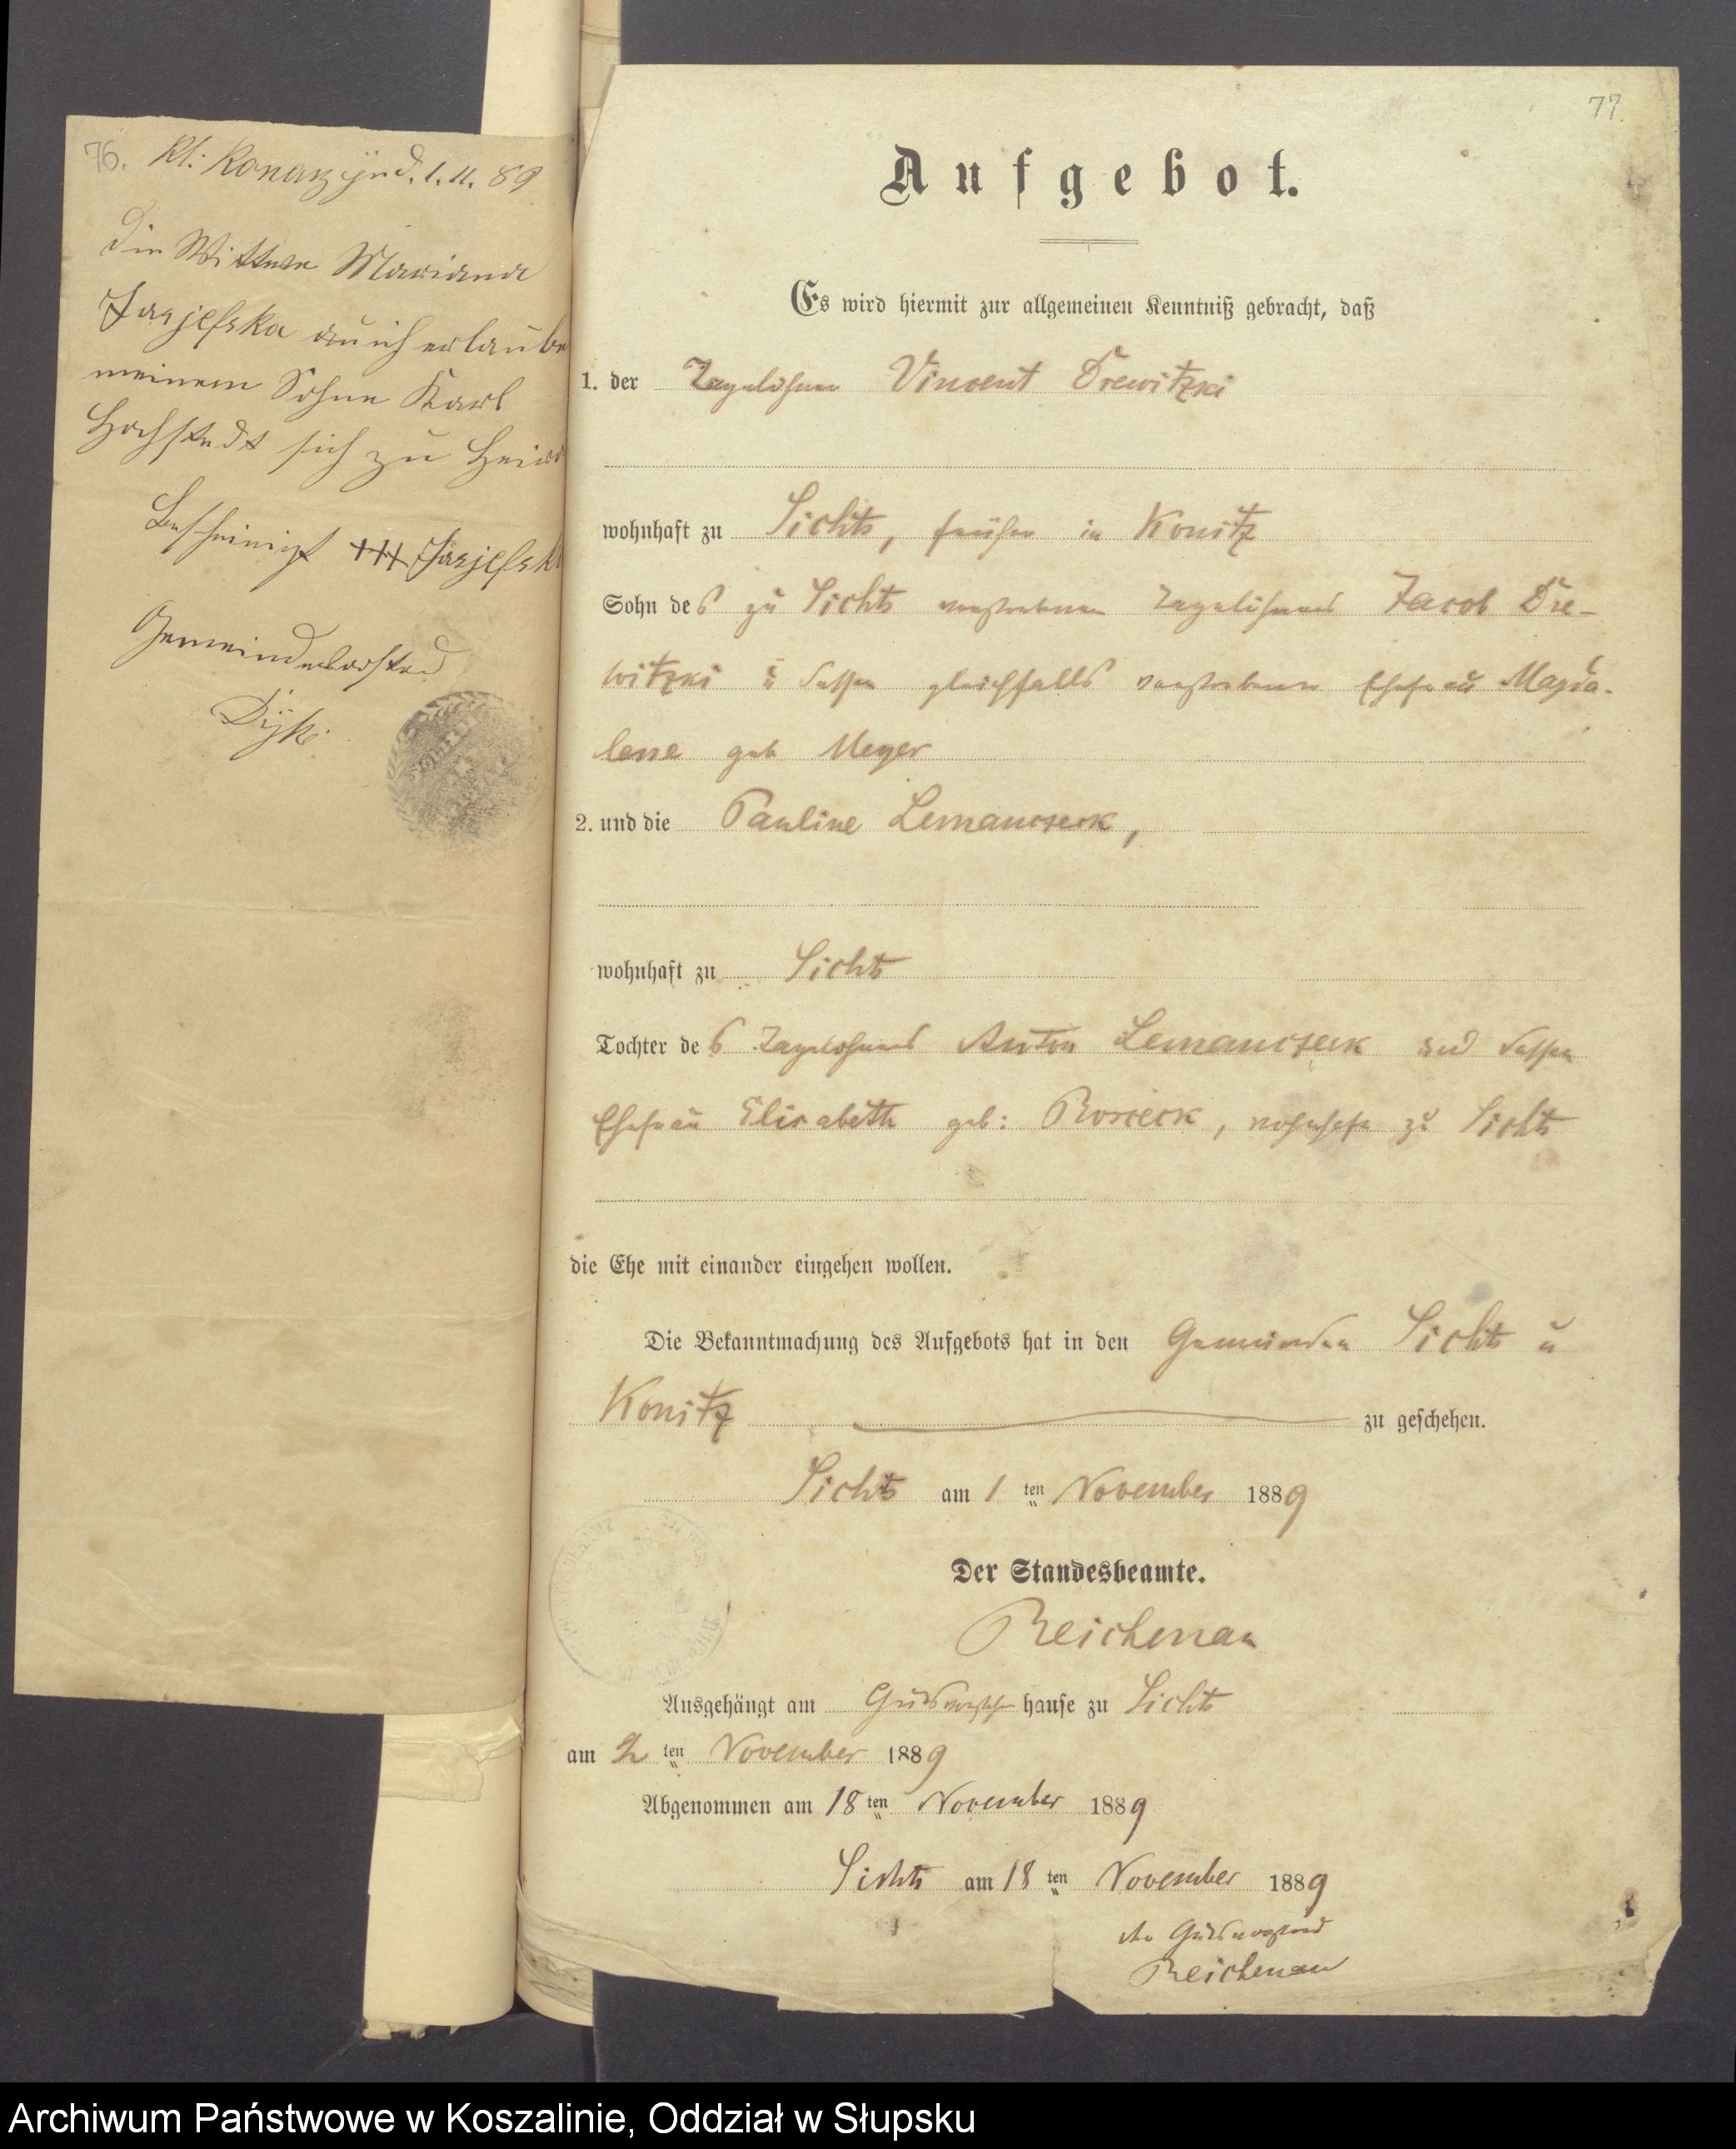 76.
Kl: Konarzyn d. 1. 11. 89
Die Wittwe Mariana
meinem Sohne Karl
Hochstedt sich zu
Bescheinigt +++
Gemeindevorstand
77.
Aufgebot.
Es wird hiermit zur allgemeinen Kenntniß gebracht, daß
1. der Tagelöhner Vincent Drewitzki
wohnhaft zu Sichts, früher in Konitz
Sohn des zu Sichts verstorbenen Tagelöhners Jacob Dre-
witzki u dessen gleichfalls verstorbenen Ehefrau Magda-
lene geb Meyer
2. und die Pauline Lemanczeck,
wohnhaft zu Sichts
Tochter des Tagelöhners Anton Lemanczeck und dessen
Ehefrau Elisabeth geb: , wohnhaft zu Sichts
die Ehe mit einander eingehen wollen.
Die Bekanntmachung des Aufgebots hat in den Gemeinden Sichts u
Konitz zu geschehen.
Sichts am 1 ten November 1889
Der Standesbeamte.
Reichenau
Ausgehängt am hause zu Sichts
am 2 ten November 1889
Abgenommen am 18 ten November 1889
Sichts am 18 ten November 1889
Der Gutsvorstand
Reichenau
Archiwum Państwowe w Koszalinie, Oddział w Słupsku